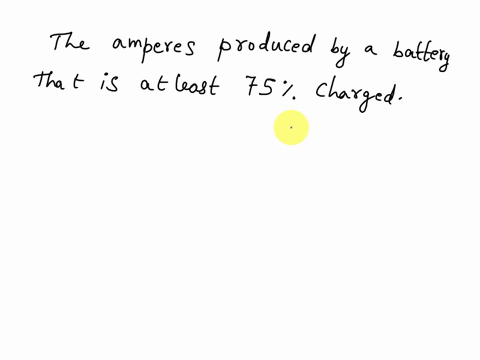 The amperes produced by a battery
that is atleast 75% charged.